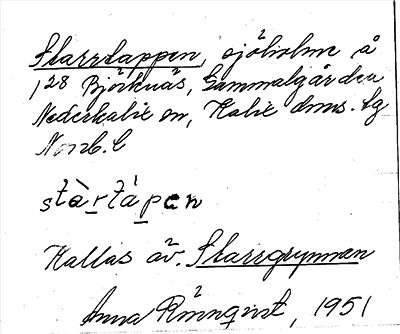 Starrtappen, sjöholme å
1²⁸ Björknäs, Gammalgården
Nederkalix sn, Kalix dms. tg
Norrb. l
stàrtàpen
Kallas äv. Starrgrynnan
Anna Rönnqvist, 1951